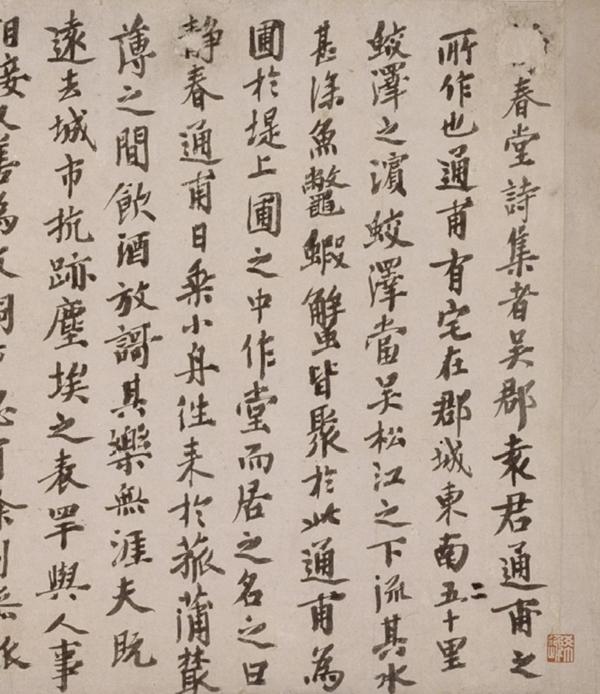 春堂詩集者吴郡袁君通甫之
所作也通甫有宅在郡城東南五十里
蛟澤之濱蛟澤當吴松江之下流其水
甚深魚鼈蝦蟹皆聚於此通甫為
圃於堤上圃之中作堂而居之名之曰
静春通甫日乗小舟往来於菰蒲藂
薄之間飲酒放謌其樂無涯夫既
遠去城市抗跡塵埃之表罕與人事
相接又善為文詞